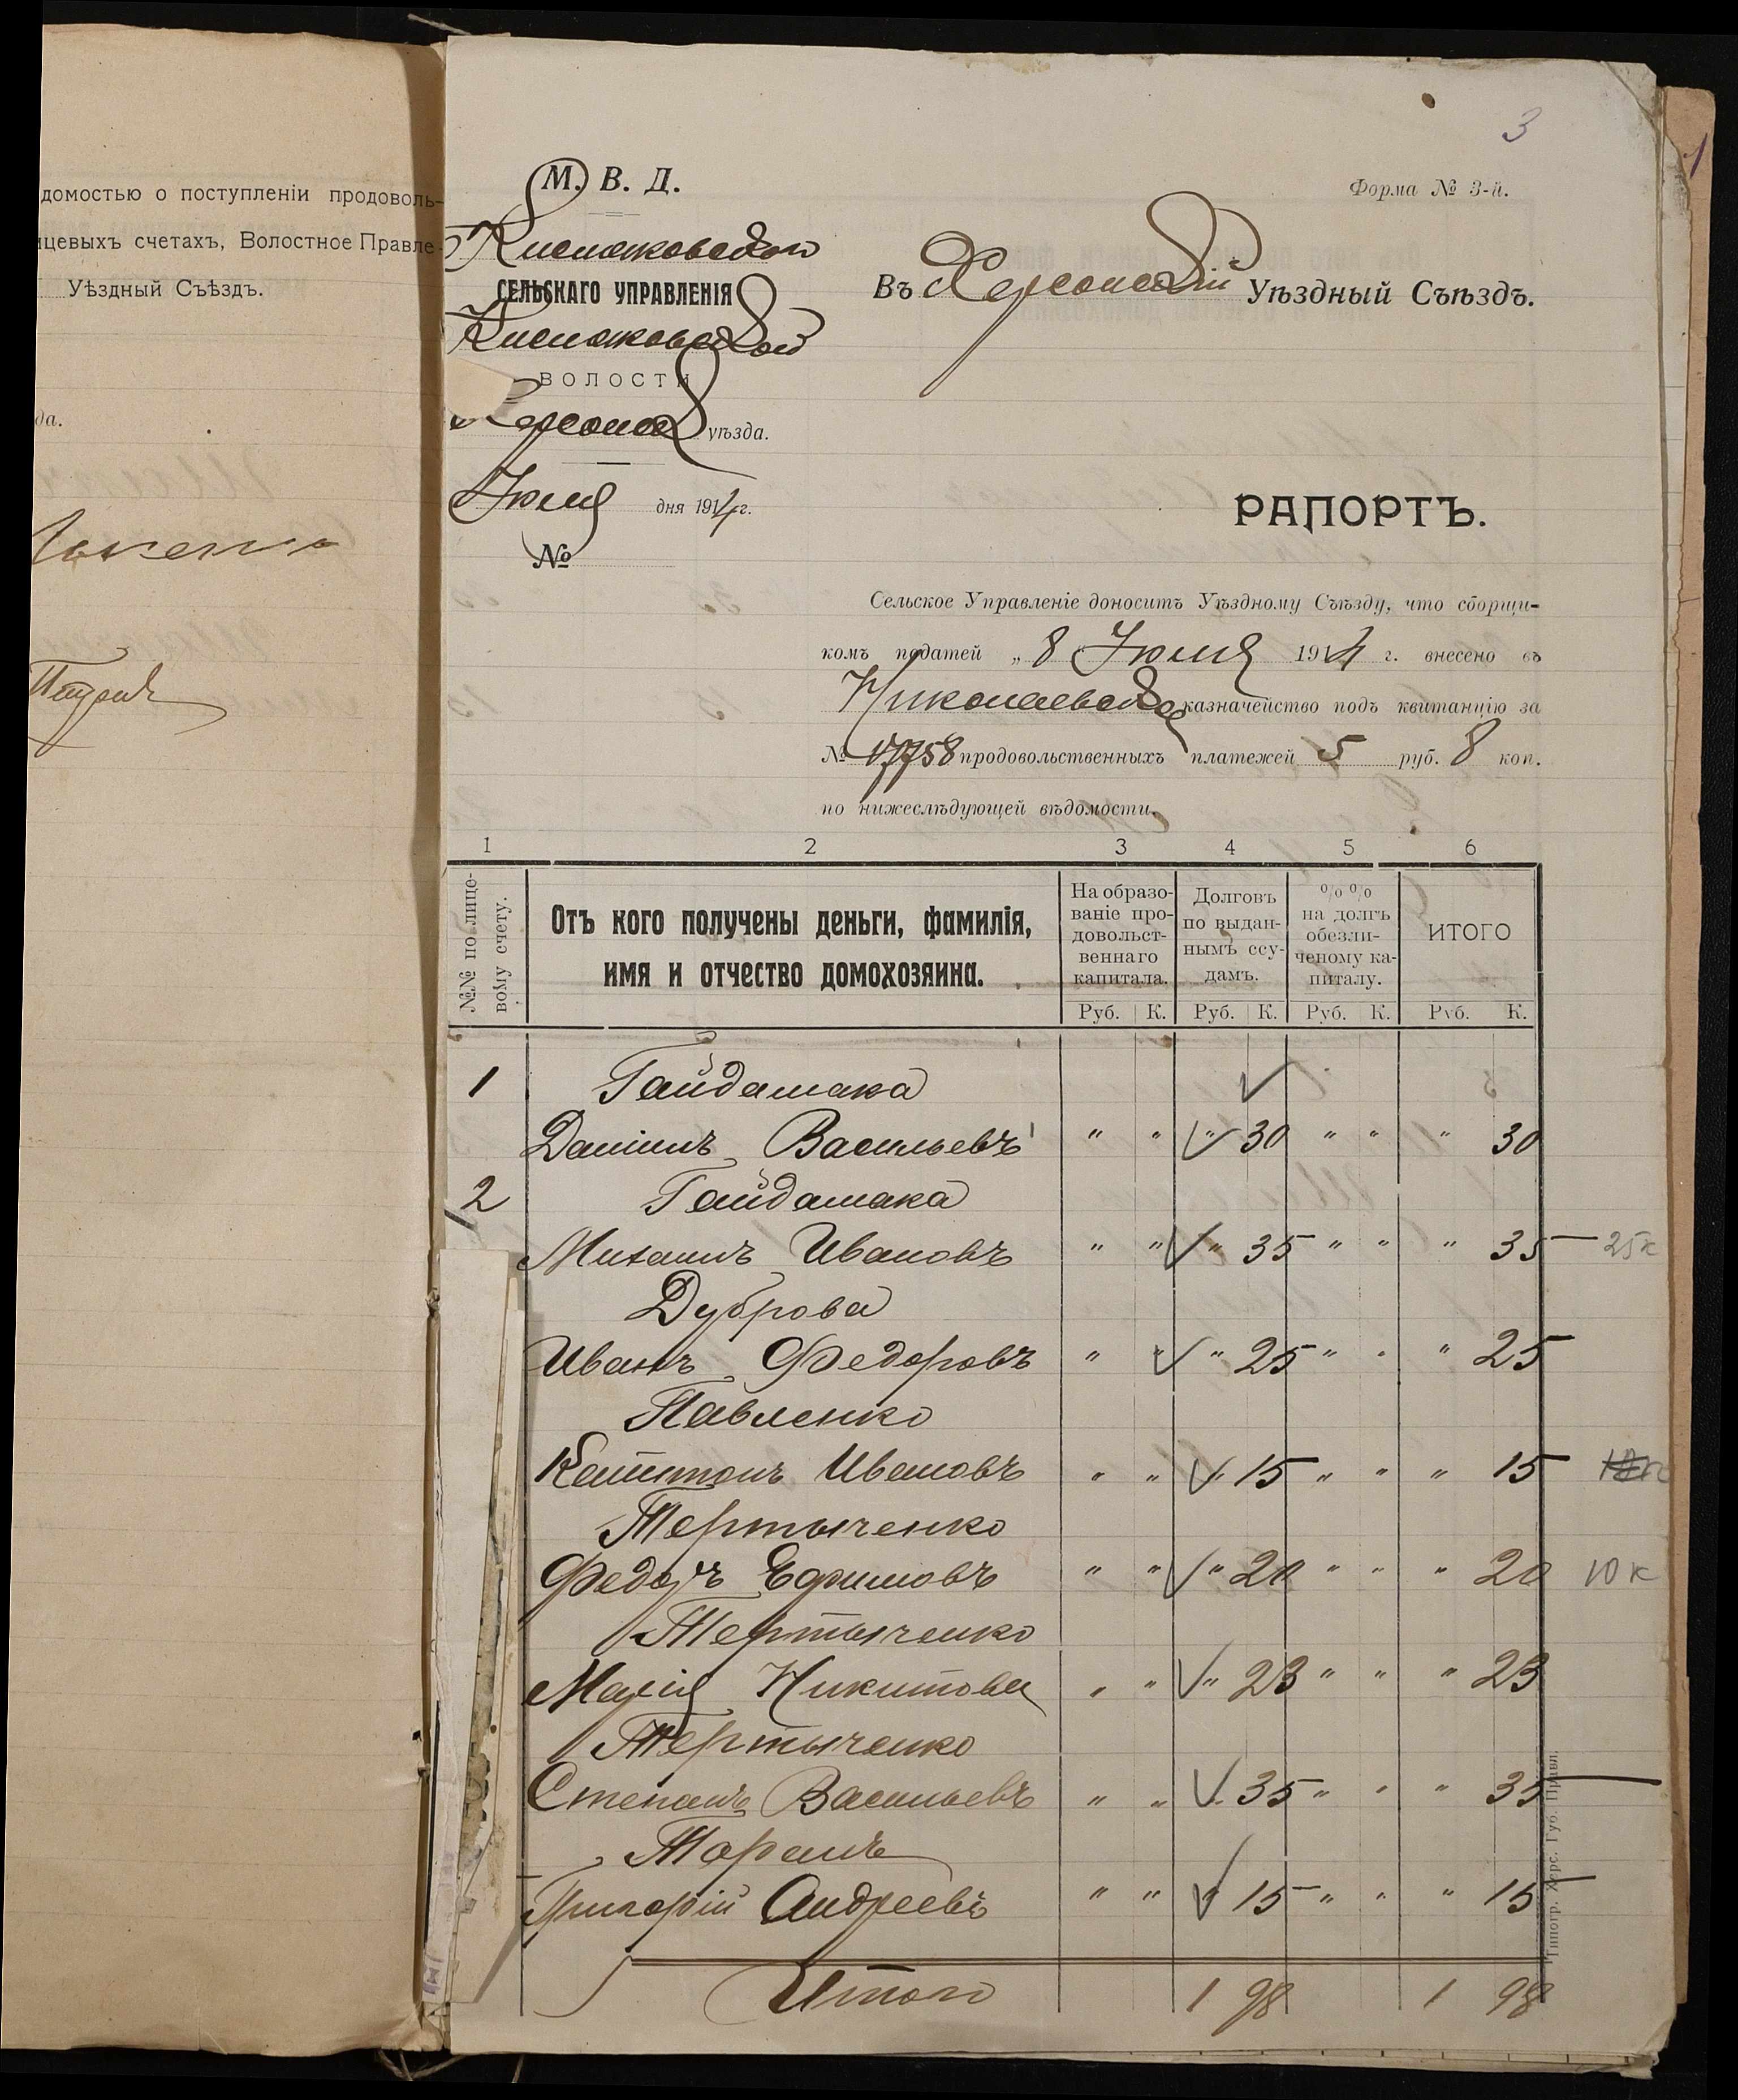 домостью о поступленіи продоволь-
ицевыхъ счетахъ, Волостное Правле-
Уѣздный Съѣздъ.
да.
3
1
М. В. Д.
Форма № 3-й.
Кисляковскаго
СЕЛЬСКАГО УПРАВЛЕНІЯ
Въ Херсонскій Уѣздный Съѣздъ.
Кисляковской
ВОЛОСТИ
Херсонск уѣзда.
Іюля дня 1914 г.
РАПОРТЪ.
№
Сельское Управленіе доноситъ Уѣздному Съѣзду, что сборщи-
комъ податей „8 Іюля 1914 г. внесено въ
Николаевское казначейство подъ квитанцію за
№ 17758 продовольственныхъ платежей 5 руб. 8 коп.
по нижеслѣдующей вѣдомости.
1 2 3 4 5 6
№№ по лице-
вому счету.
Отъ кого получены деньги, фамилія,
имя и отчество домохозяина.
На образо-
ваніе про-
довольст-
веннаго
капитала.
Долговъ
по выдан-
нымъ ссу-
дамъ.
%%
на долгъ
обезли-
ченому ка-
питалу.
ИТОГО
Руб. К. Руб. К. Руб. К. Руб. К.
1 Гайдамака
Даніилъ Васильевъ " " " 30 " " " 30
2 Гайдамака
Михаилъ Ивановъ " " " 35 " " " 35 25к
Дуброва
Иванъ Федоровъ " " " 25 " " " 25
Павленко
Капитонъ Ивановъ " " " 15 " " " 15
Тертыченко
Федоръ Ефимовъ " " " 20 " " " 20 10к
Тертыченко
Марія Никитова " " " 23 " " " 23
Тертыченко
Степанъ Васильевъ " " " 35 " " " 35
Таранъ
Григорій Андреевъ " " " 15 " " " 15
Итого 1 98 1 98
Типогр. Херс. Губ. Правл.